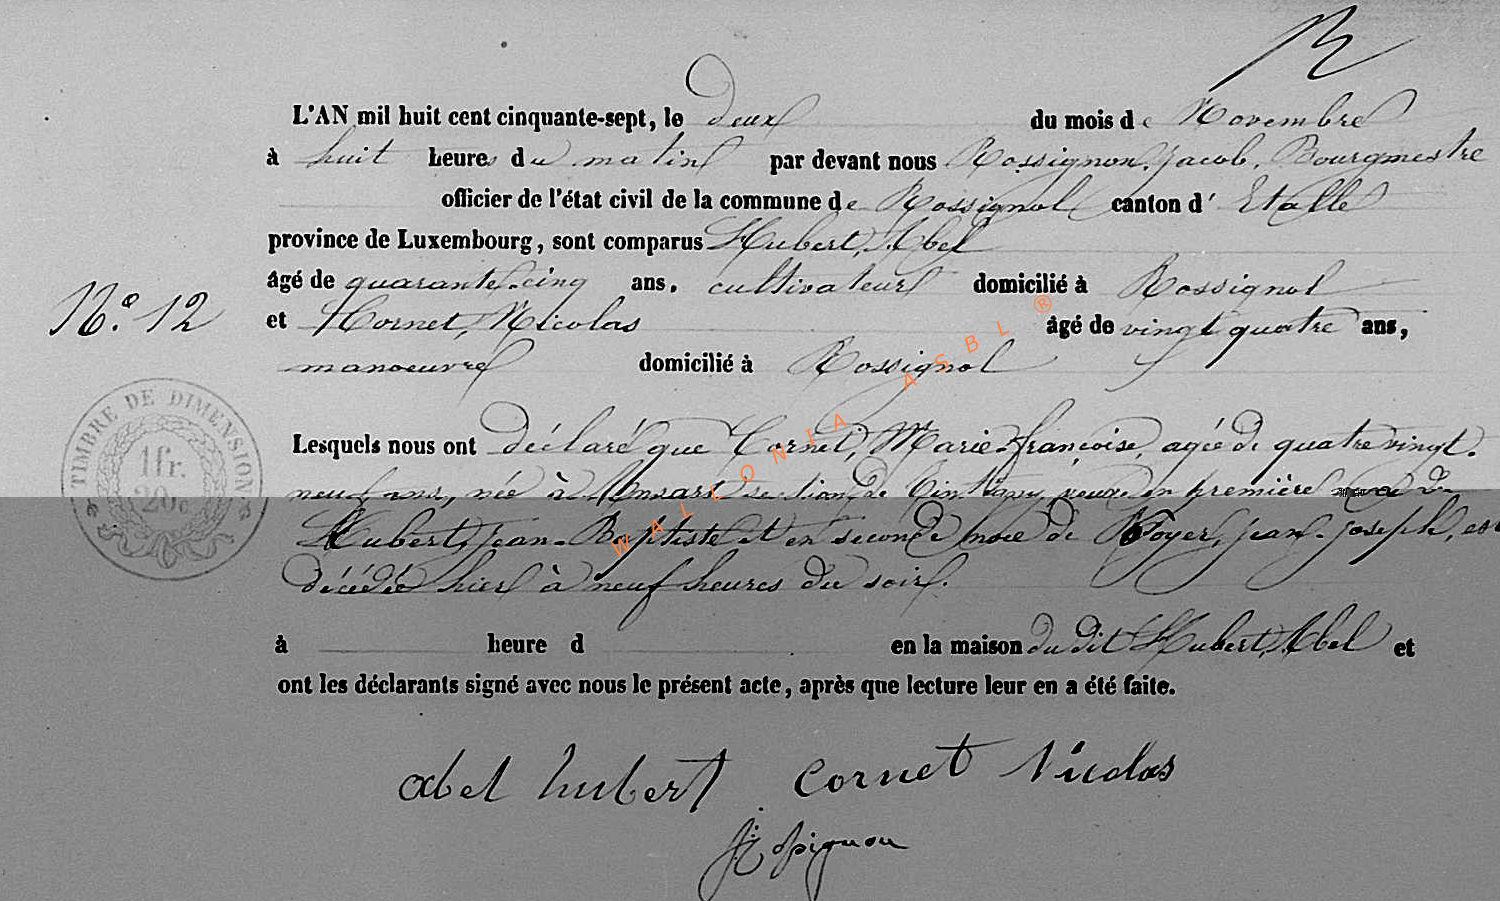 L'AN mil huit cent cinquante-sept, le deux du mois de Novembre
à huit heures du matin par devant nous Rossignon, Jacob, Bourgmestre
officier de l'état civil de la commune de Rossignol canton d' Etalle
province de Luxembourg, sont comparus Hubert, Abel
âgé de quarante-cinq ans, cultivateur domicilié à Rossignol
N.° 12
et Cornet, Nicolas âgé de vingt quatre ans,
manoeuvre domicilié à Rossignol
TIMBRE DE DIMENSION
1 fr.
20 c
Lesquels nous ont déclaré que Cornet, Marie-françoise, agée de quatre vingt-
neuf ans, née à Ansart section de Tintigny, veuve en première noce de
Hubert, Jean-Baptiste et en seconde noce de Noyer, Jean-Joseph, est
décédée hier à neuf heures du soir.
à heure d en la maison du dit Hubert, Abel et
ont les déclarants signé avec nous le présent acte, après que lecture leur en a été faite.
abel hubert cornet Nicolas
Rossignon
WALLONIA ASBL ®